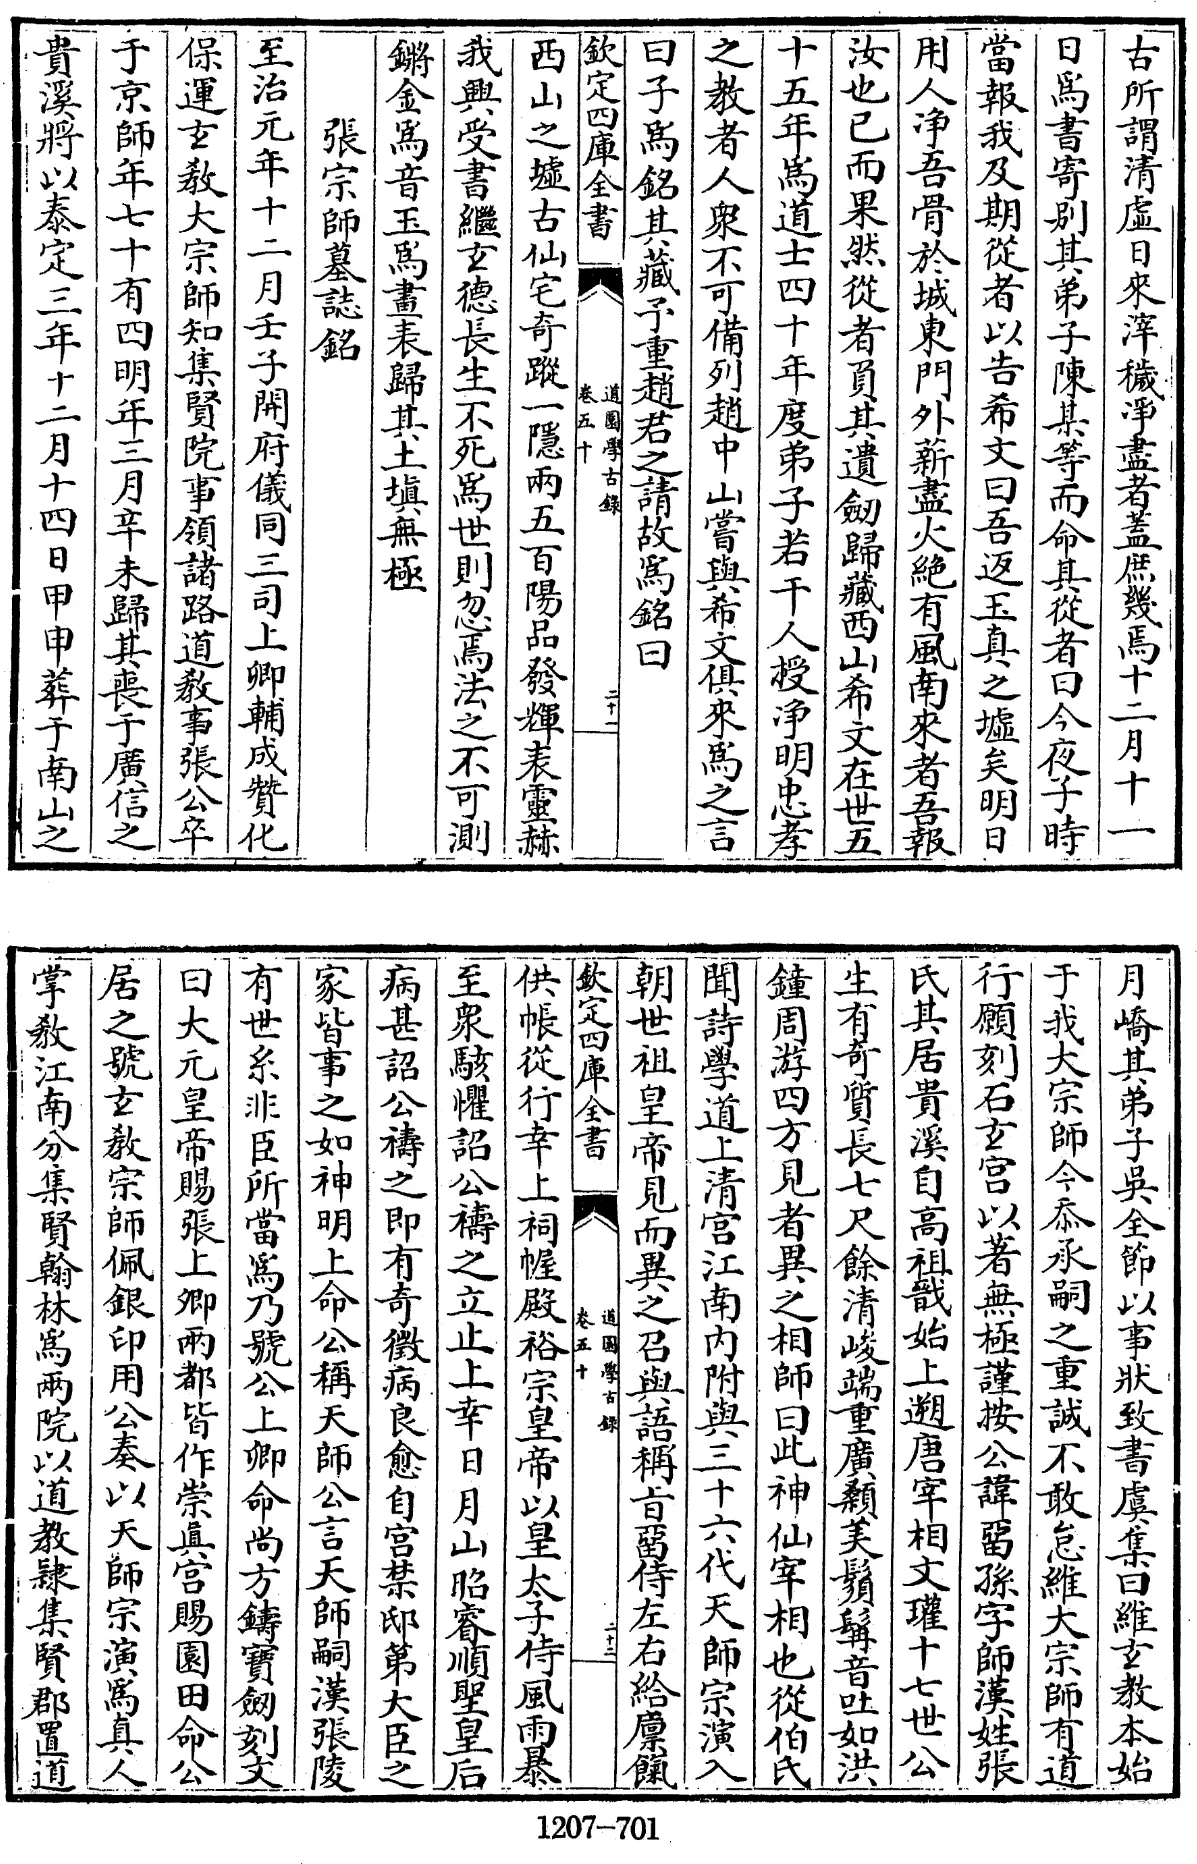 古所謂清虛日來滓穢淨盡者蓋庶幾焉十二月十一
日爲書寄别其弟子陳某等而命其從者曰今夜子時
當報我及期從者以告希文曰吾返玉真之墟矣明日
用人净吾骨於城東門外薪盡火絶有風南來者吾報
汝也已而果然從者負其遺劒歸藏西山希文在世五
十五年爲道士四十年度弟子若干人授净明忠孝
之教者人衆不可備列趙中山嘗與希文俱來爲之言
曰子爲銘其藏予重趙君之請故爲銘曰
欽定四庫全書
道園學古錄
卷五十
二十一
西山之墟古仙宅奇蹤一隱兩五百陽品發輝表靈赫
我興受書繼玄德長生不死爲世則忽焉法之不可測
鏘金爲音玉爲畫表歸其土塡無極
張宗師墓誌銘
至治元年十二月壬子開府儀同三司上卿輔成贊化
保運玄教大宗師知集賢院事領諸路道教事張公卒
于京師年七十有四明年三月辛未歸其喪于廣信之
貴溪將以泰定三年十二月十四日甲申葬于南山之
月嶠其弟子吳全節以事狀致書虞集曰維玄教本始
于我大宗師今忝承嗣之重誠不敢怠維大宗師有道
行願刻石玄宫以著無極謹按公諱留孫字師漢姓張
氏其居貴溪自高祖戩始上遡唐宰相文瓘十七世公
生有奇質長七尺餘清峻端重廣顙美鬚髯音吐如洪
鐘周游四方見者異之相師曰此神仙宰相也從伯氏
聞詩學道上清宫江南内附與三十六代天師宗演入
朝世祖皇帝見而異之召與語稱旨留侍左右給廪餼
欽定四庫全書
道園學古錄
卷五十
二十二
供帳從行幸上祠幄殿裕宗皇帝以皇太子侍風雨暴
至衆駭懼詔公禱之立止上幸日月山昭睿順聖皇后
病甚詔公禱之即有奇徵病良愈自宫禁邸第大臣之
家皆事之如神明上命公稱天師公言天師嗣漢張陵
有世系非臣所當爲乃號公上卿命尚方鑄寶劒刻文
曰大元皇帝賜張上卿兩都皆作崇真宫賜園田命公
居之號玄教宗師佩銀印用公奏以天師宗演爲真人
掌教江南分集賢翰林爲兩院以道教隸集賢郡置道
1207-701